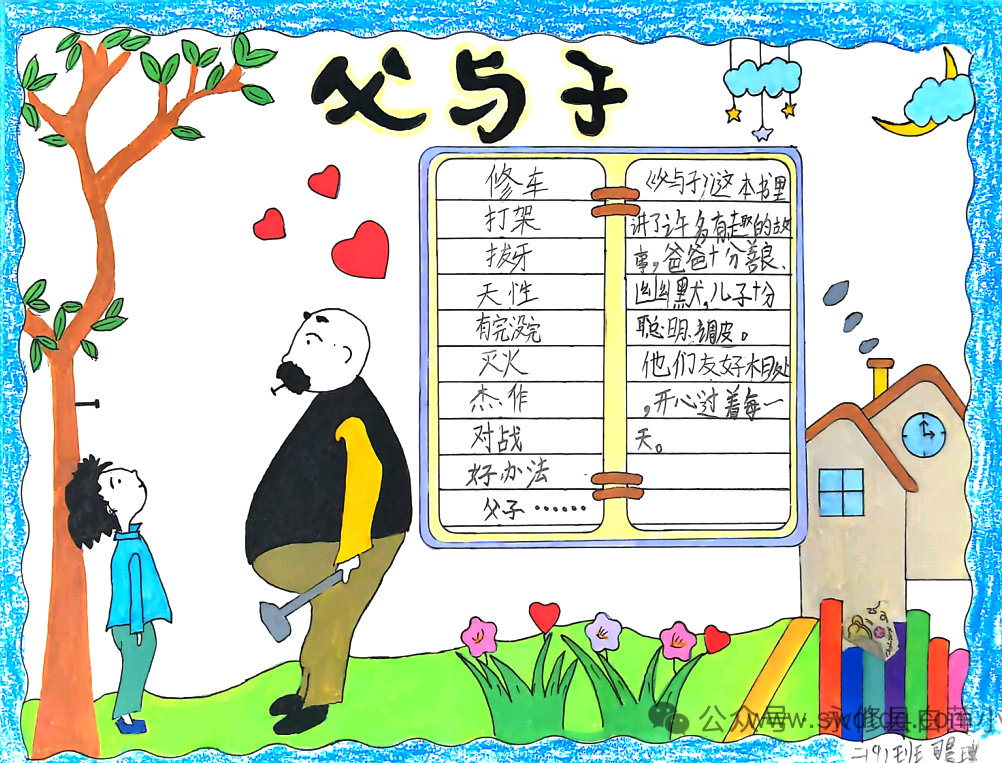 父与子
修车
打架
拔牙
天性
有完没完
灭火
杰作
对战
好办法
父子……
《父与子》这本书里
讲了许多有趣的故
事，爸爸十分善良、
幽默，儿子十分
聪明、调皮。
他们友好相处
，开心过着每一
天。
公众号
永修县白莲小